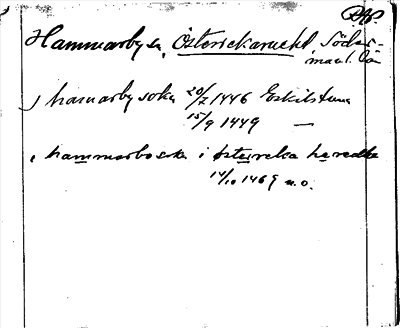 RAP.
Hammarby sn, Österrekarnehd Söder-
manl. län
j hamarby sokn 20/7 1446 Eskilstuna
15/9 1449 —
i hammarbo sokn i österreka heredhe
14/10 1469 n.o.